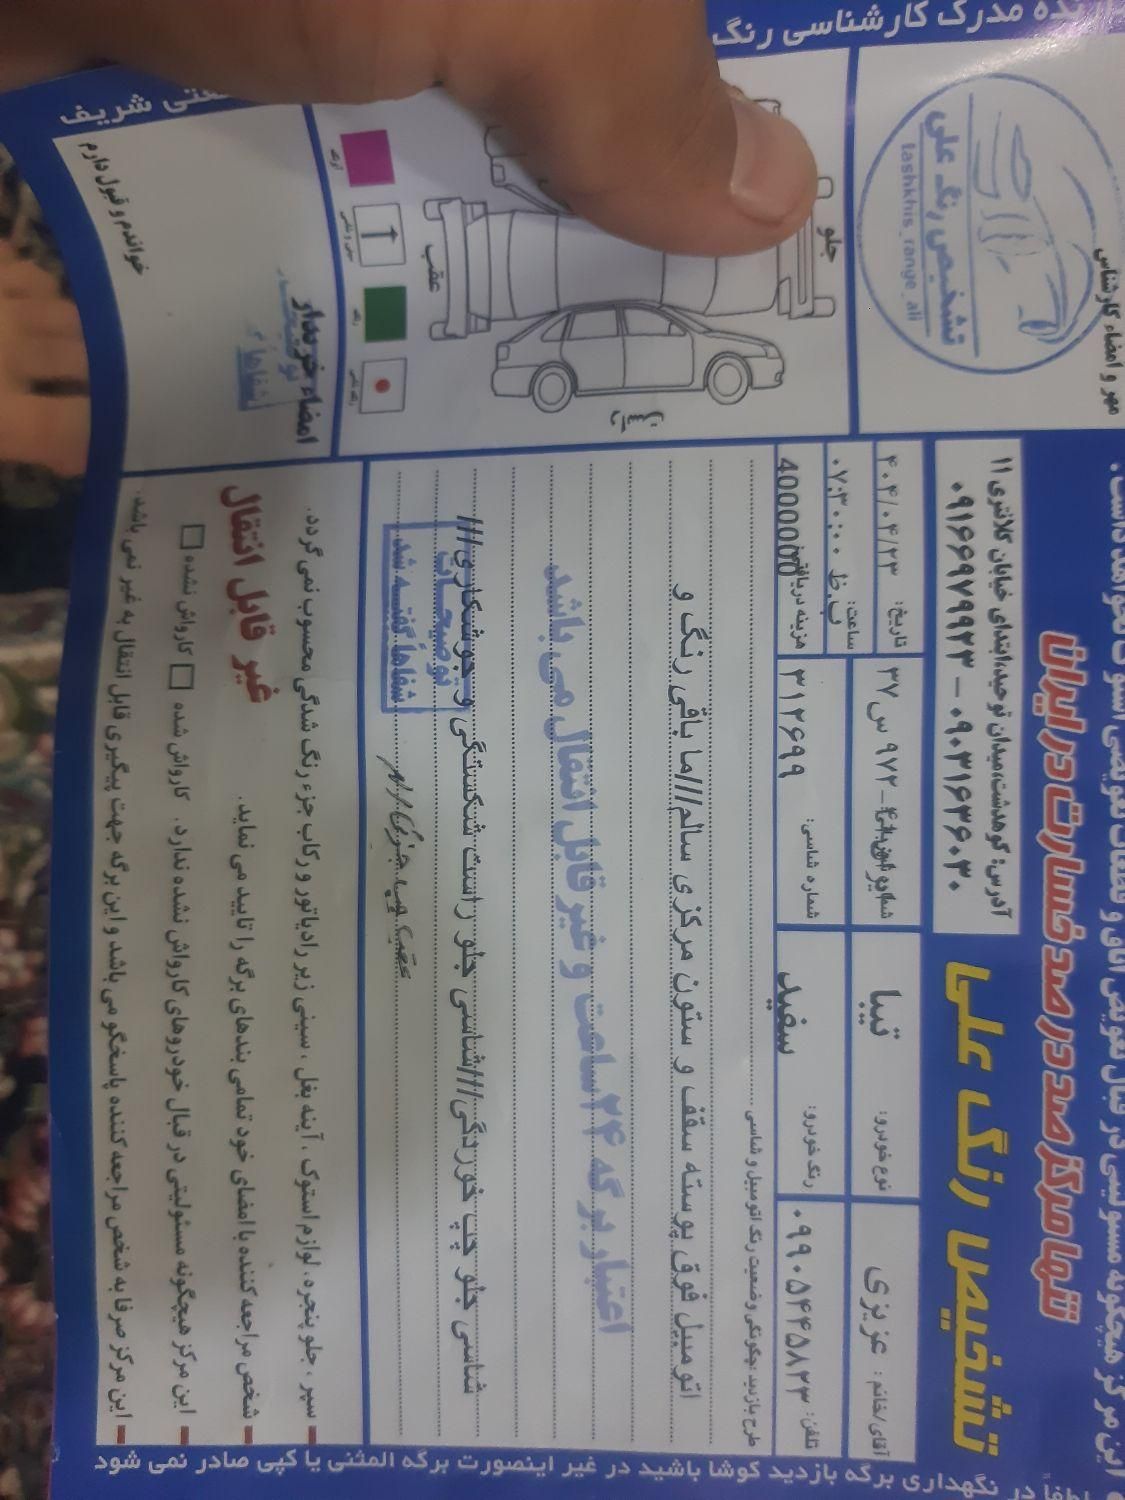 نده مدرک کارشناسی رنگ
تی شریف
تنها مرکز صد در صد خسارت در ایران
تشخیص رنگ علی
آدرس: کوهدشت،میدان توحید،ابتدای خیابان کلانتری ۱۱
۰۹۱۶۶۹۷۹۹۲۳ - ۰۹۰۳۱۶۳۶۰۳۰
مهر و امضاء کارشناس
تشخیص رنگ علی
tashkhis_range_ali
آقای/خانم : عزیزی
نوع خودرو: تیبا
۹۷۲ س ۳۷
تاریخ: ۴۰۴/۰۴/۲۳
تلفن: ۰۹۹۰۵۴۴۵۸۲۳
رنگ خودرو: سفید
شماره شاسی: ۳۱۲۶۹۹
ساعت: ۰۷:۳۰:۰۰ ب.ظ
هزینه دریافتی:
4000000
طرح بازدید ،چگونگی وضعیت رنگ اتومبیل و شاسی
اتومبیل فوق پوسته سقف و ستون مرکزی سالم///اما باقی رنگ و
اعتبار برگه ۲۴ ساعت و غیر قابل انتقال می باشد
شاسی جلو چپ خوردگی///شاسی جلو راست شکستگی و جوشکاری///
توضیحات
شفاهاً گفته شد
جلو
عقب
رنگ
خواندم و قبول دارم
امضاء خریدار
توضیحات
شفاهاً
سپر ، جلو پنجره ، لوازم استوک ، آینه بغل ، سینی زیر رادیاتور و رکاب جزء رنگ شدگی محسوب نمی گردد.
شخص مراجعه کننده با امضای خود تمامی بندهای برگه را تایید می نماید.
غیر قابل انتقال
این مرکز هیچگونه مسئولیتی در قبال خودروهای کارواش نشده ندارد. کارواش شده کارواش نشده
این مرکز صرفا به شخص مراجعه کننده پاسخگو می باشد و این برگه جهت پیگیری قابل انتقال به غیر نمی باشد.
لطفاً در نگهداری برگه بازدید کوشا باشید در غیر اینصورت برگه المثنی یا کپی صادر نمی شود